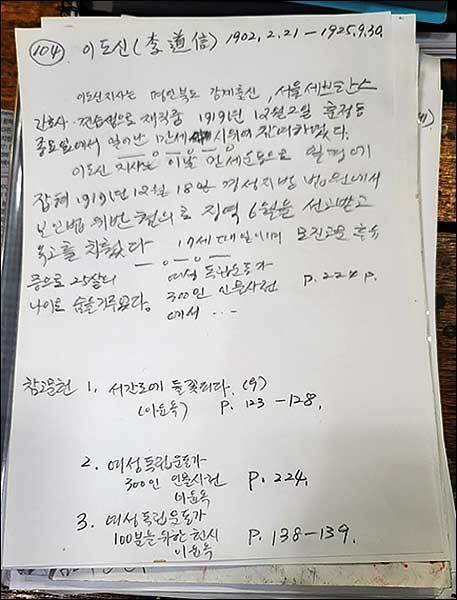 104 이도신(李道信) 1902.2.21 - 1925.9.30.
이도신 지사는 평안북도 강계출신, 서울세브란스
간호사 견습생으로 재직중 1919년 12월 2일 훈정동
종묘앞에서 일어난 만세 시위에 참여하였다.
이도신 지사는 이날 만세운동으로 일경에
잡혀 1919년 12월 18일 경성지방법원에서
보안법 위반 혐의로 징역 6월을 선고받고
옥고를 치뤘다 17세 때 일이며 모진고문 후유
증으로 25살의
나이로 숨을 거두었다.
여성 독립운동가
300인 인물사전 P. 224 P.
에서 ...
참고문헌 1. 서간도에 들꽃피다. (9)
(이윤옥) P. 123 - 128.
2. 여성독립운동가
300인 인물사전 P. 224.
이윤옥
3. 여성독립운동가
100분을 위한 헌시 P. 138-139.
이윤옥